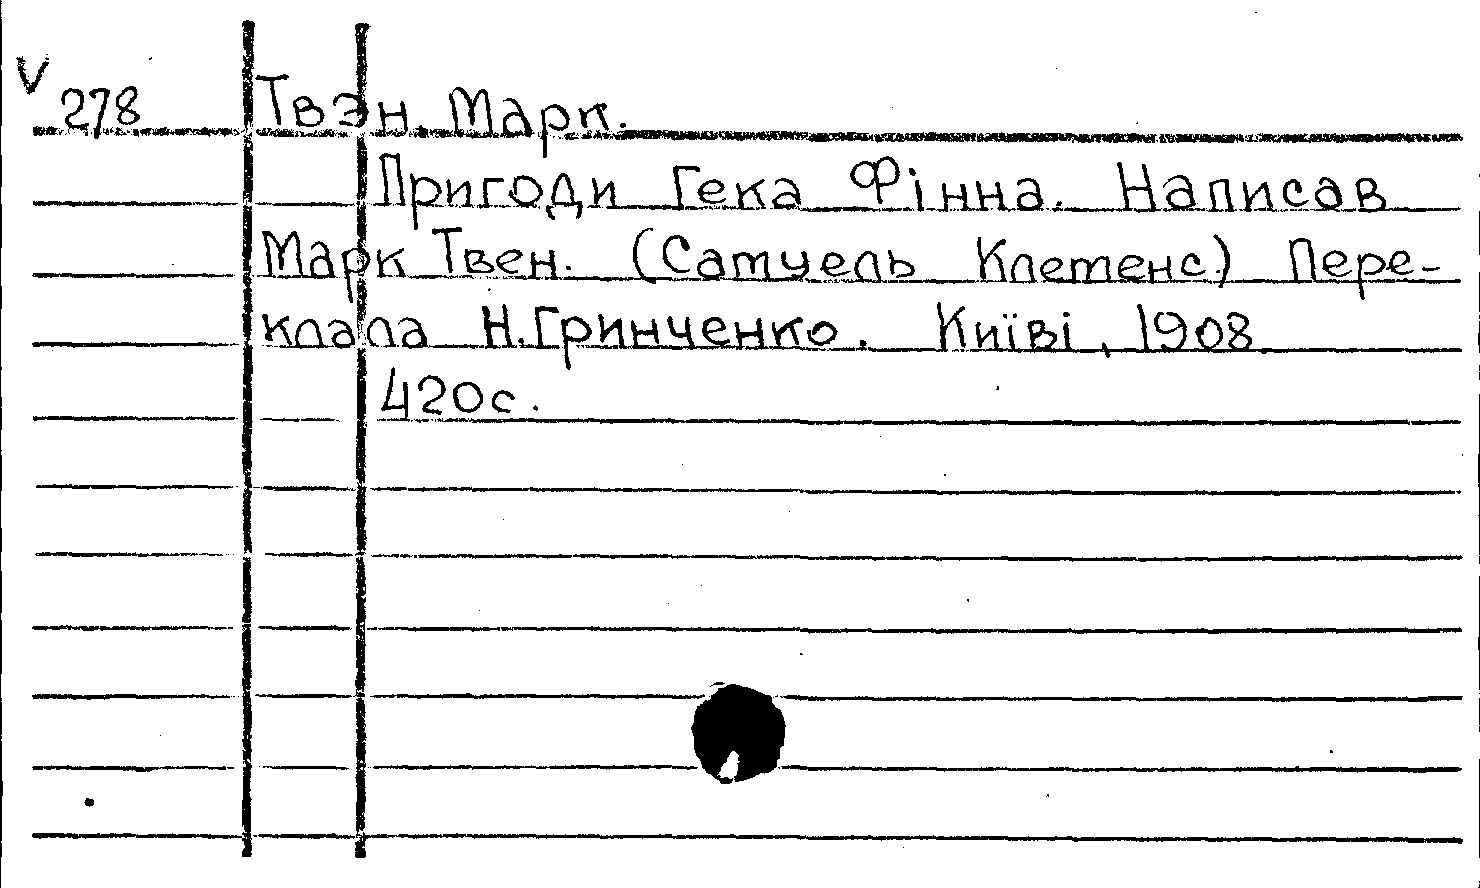 V
278 Твэн, Марк.
Пригоди Гека Фінна. Написав
Марк Твен. (Самуель Клеменс.) Пере-
клала Н.Грінченко. Київі, 1908
420с.